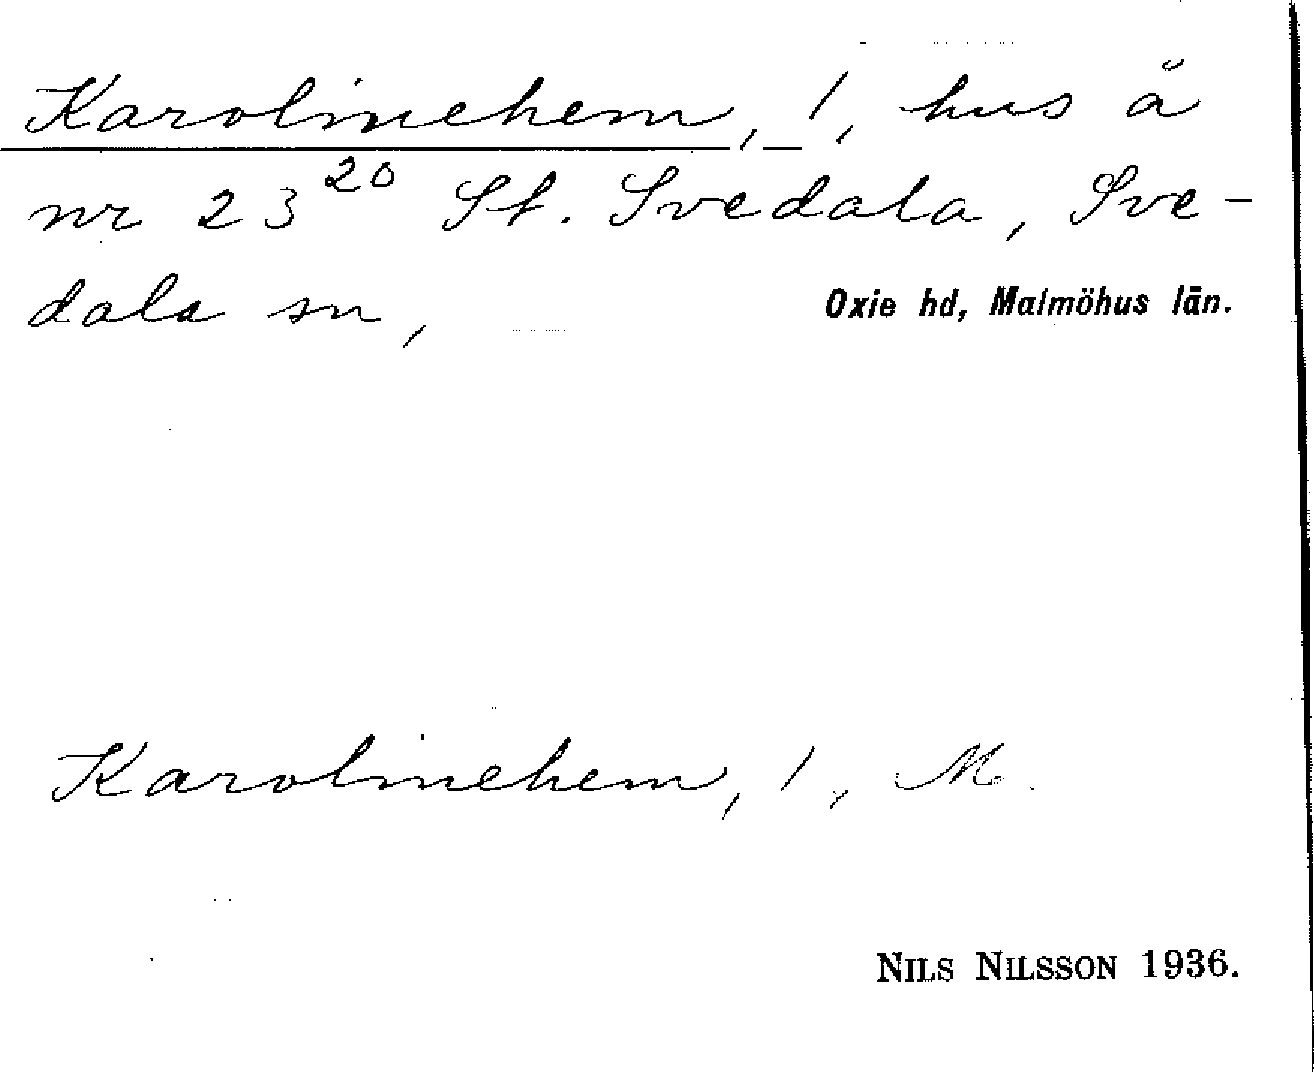 Karolinehem, 1, hus å
nr 23²⁰ St. Svedala, Sve-
dala sn, Oxie hd, Malmöhus län.
Karolinehem, 1, M.
NILS NILSSON 1936.